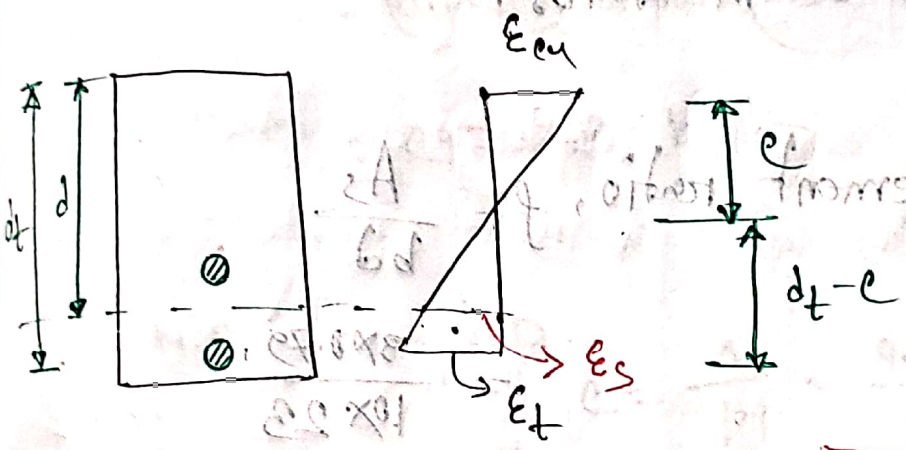 ε_cu
d_t
d
c
d_t - c
ε_s
ε_t